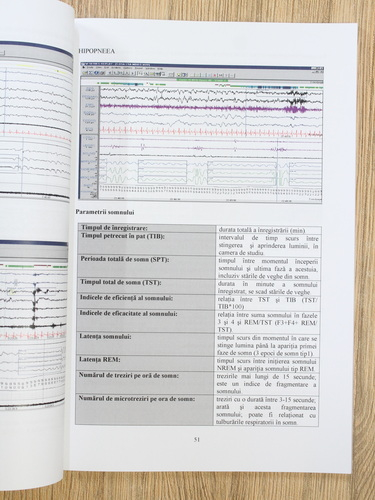 HIPOPNEEA
Parametrii somnului
Timpul de înregistrare:
durata totală a înregistrării (min)
Timpul petrecut în pat (TIB):
interval de timp scurs între
stingerea și aprinderea luminii, în
camera de studiu
Perioada totală de somn (SPT):
timpul între momentul începerii
somnului și ultima fază a acestuia,
incluziv stările de veghe din somn
Timpul total de somn (TST):
durata în minute a somnului
înregistrat, se scad stările de veghe
Indicele de eficiență al somnului:
relația între TST și TIB (TST/
TIB*100)
Indicele de eficacitate al somnului:
relația între suma somnului în fazele
3 și 4 și REM/TST (F3+F4+ REM/
TST)
Latența somnului:
timpul scurs din momentul în care se
stinge lumina până la apariția primei
faze de somn (3 epoci de somn tip1)
Latența REM:
timpul scurs între inițierea somnului
NREM și apariția somnului tip REM
Numărul de treziri pe oră de somn:
trezirile mai lungi de 15 secunde,
este un indice de fragmentare a
somnului
Numărul de microtreziri pe ora de somn:
treziri cu o durată între 3-15 secunde,
arată și acesta fragmentarea
somnului, poate fi relaționat cu
tulburările respiratorii în somn
51